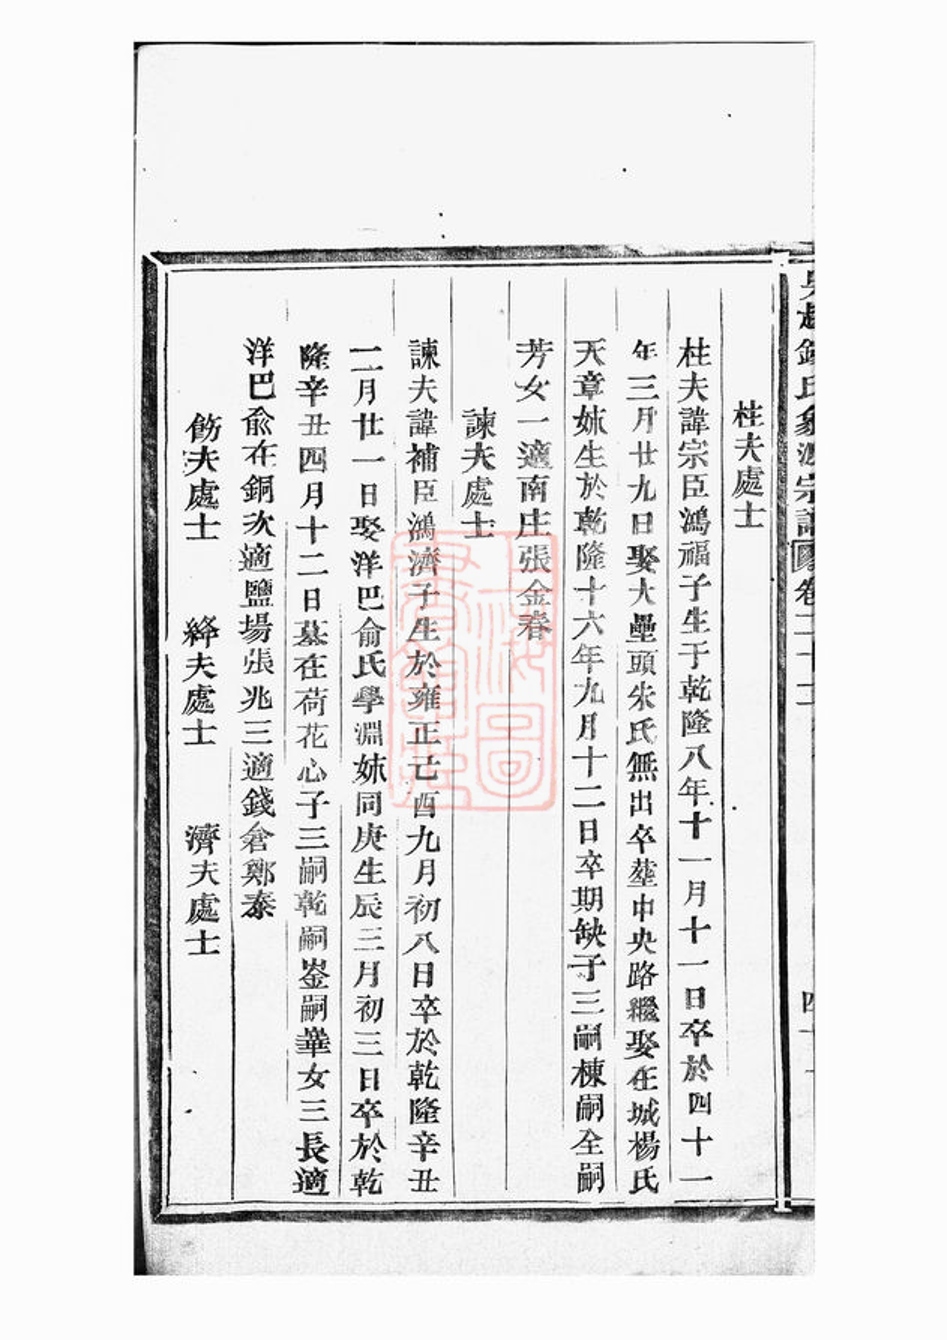 錢氏
宗譜
卷二十二
桂夫處士
桂夫諱宗臣鴻福子生于乾隆八年十一月十一日卒於四十一
年三月廿九日娶大壘頭朱氏無出卒塟中央路繼娶在城楊氏
天章姊生於乾隆十六年九月十二日卒期缺子三嗣棟嗣全嗣
芳女一適南庄張金春
諫夫處士
諫夫諱補臣鴻濟子生於雍正己酉九月初八日卒於乾隆辛丑
二月廿一日娶洋巴俞氏學淵妹同庚生辰三月初三日卒於乾
隆辛丑四月十二日墓在荷花心子三嗣乾嗣崟嗣華女三長適
洋巴俞在銅次適鹽場張兆三適錢倉鄭泰
飭夫處士 絳夫處士 濟夫處士